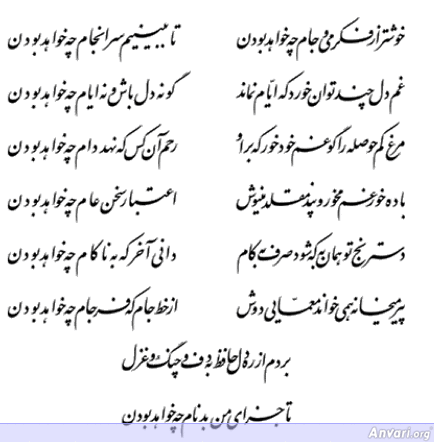 خوشتر از فکر می و جام چه خواهد بودن تا ببینیم سرانجام چه خواهد بودن
غم دل چند توان خورد که ایام نماند گو نه دل باش و نه ایام چه خواهد بودن
مرغ کم حوصله را گو غم خود خور که بر او رحم آن کس که نهد دام چه خواهد بودن
باده خور غم مخور و پند مقلد منیوش اعتبار سخن عام چه خواهد بودن
دسترنج تو همان به که شود صرف به کام دانی آخر که به ناکام چه خواهد بودن
پیر میخانه همی خواند معمایی دوش از خط جام که فرجام چه خواهد بودن
بردم از ره دل حافظ به دف و چنگ و غزل
تا جزای من بدنام چه خواهد بودن
Anvari.org